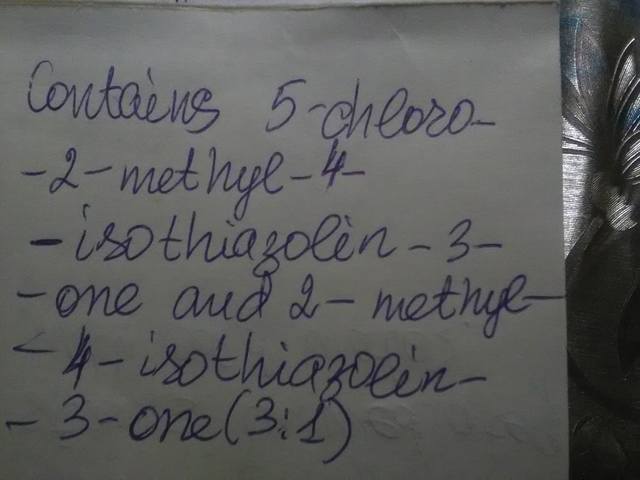 Contains 5-chloro-
-2-methyl-4-
-isothiazolin-3-
-one and 2-methyl-
-4-isothiazolin-
-3-one(3:1)